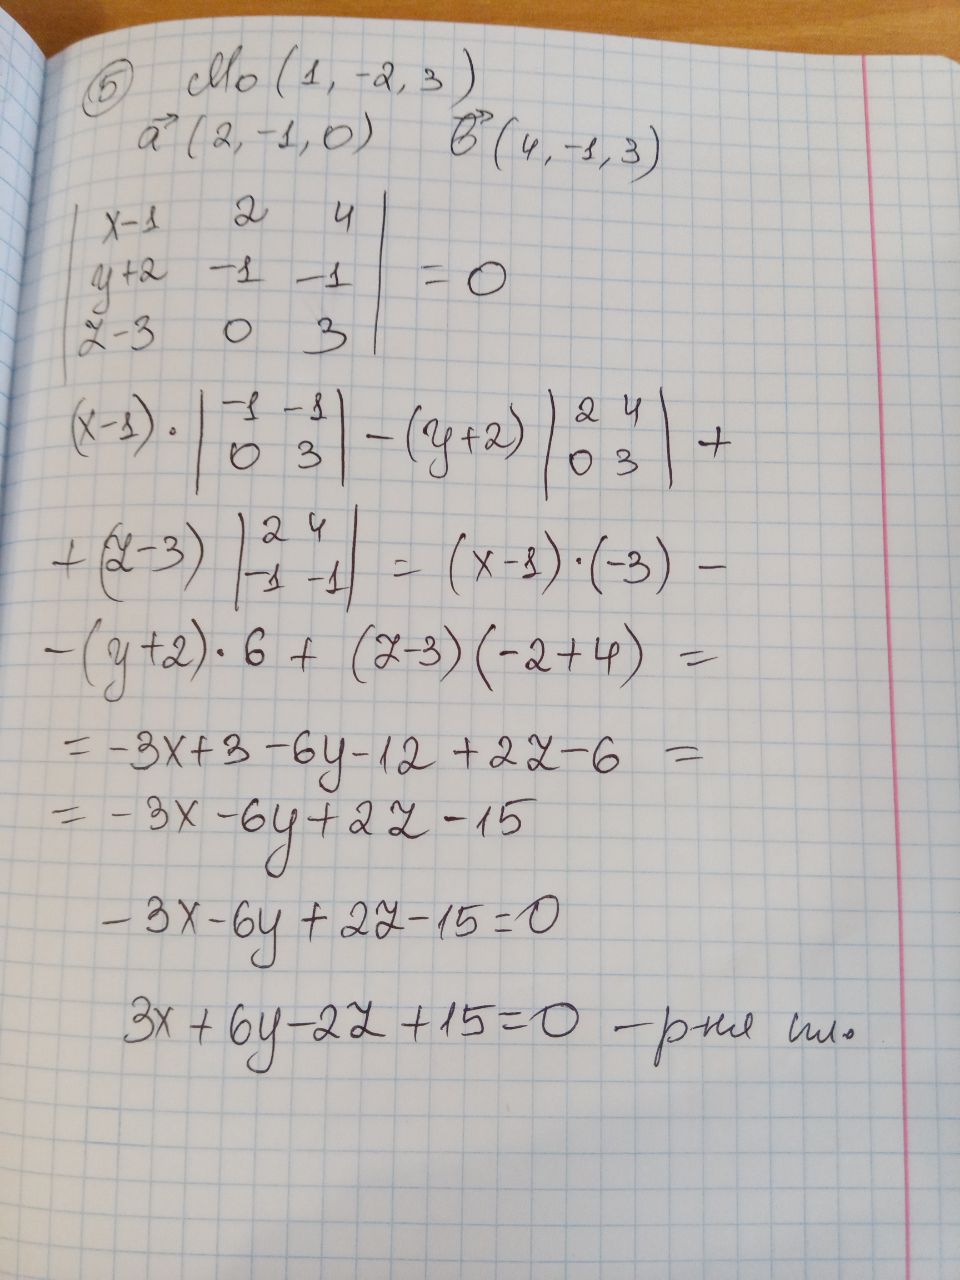 5 M₀ (1, -2, 3)
a⃗ (2, -1, 0) b⃗ (4, -1, 3)
| x-1 2 4 |
| y+2 -1 -1 | = 0
| z-3 0 3 |
(x-1) · | -1 -1 ; 0 3 | - (y+2) | 2 4 ; 0 3 | +
+ (z-3) | 2 4 ; -1 -1 | = (x-1) · (-3) -
- (y+2) · 6 + (z-3) (-2+4) =
= -3x+3 -6y-12 +2z-6 =
= -3x -6y+2z -15
-3x-6y+2z-15=0
3x+6y-2z+15=0 – р-ня пл.